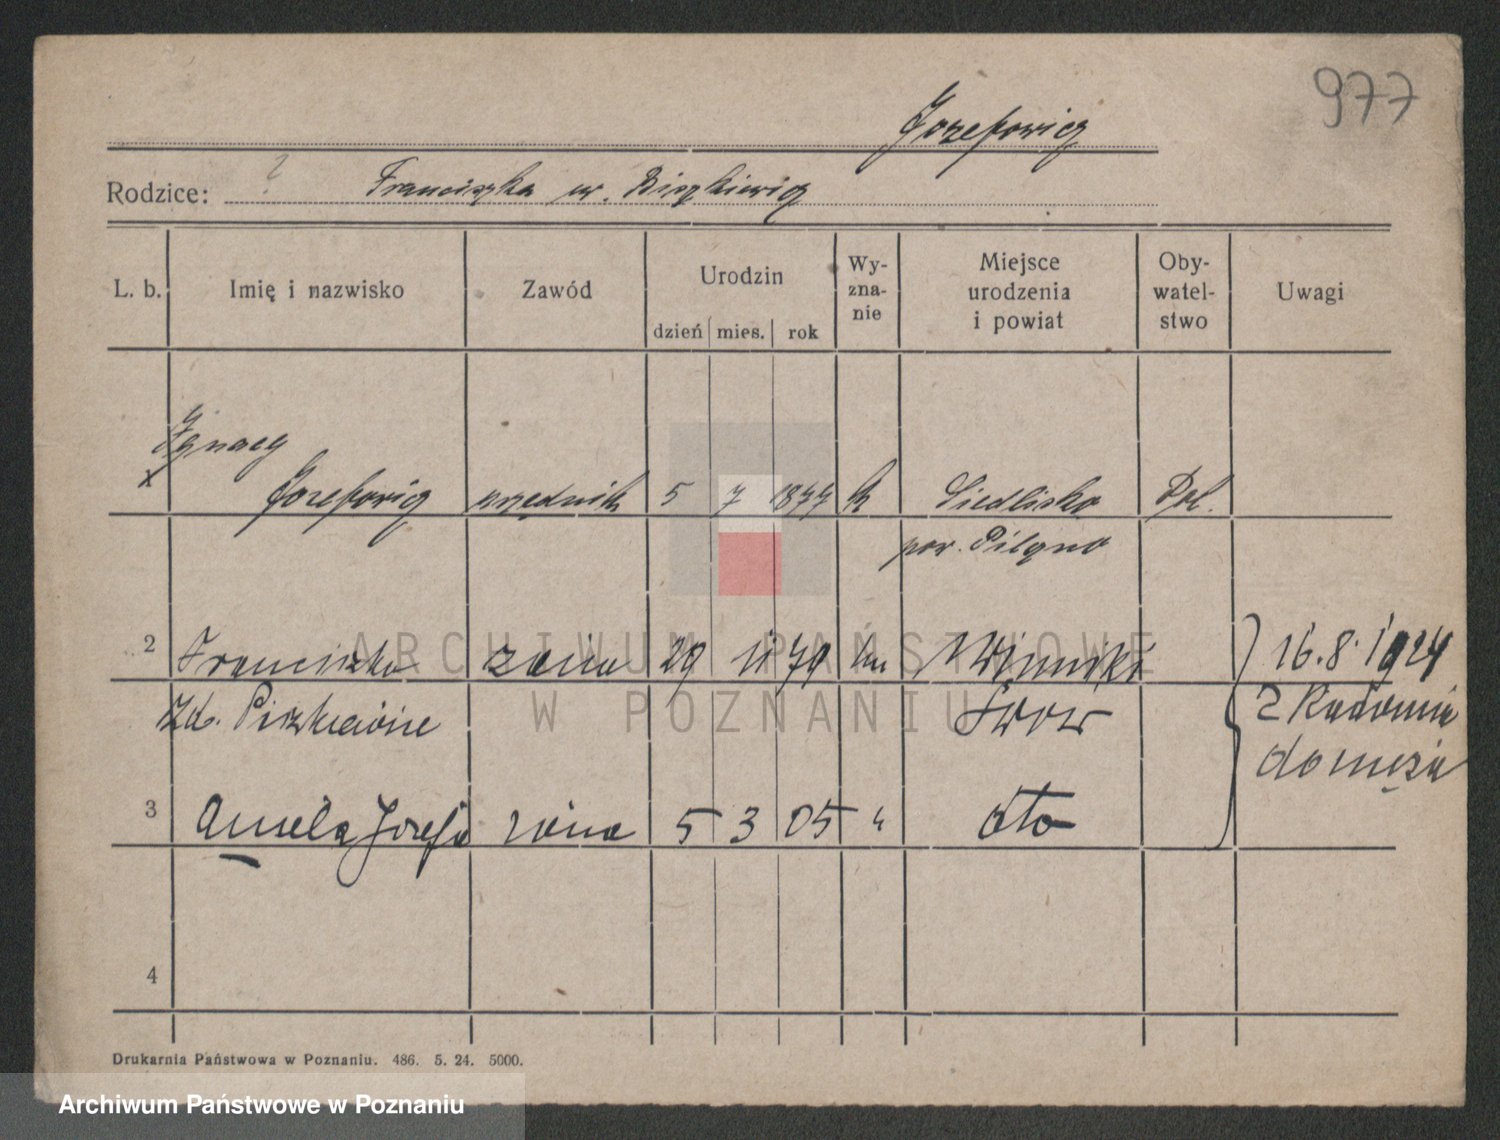 977
Jozefowicz
Rodzice: ? Franciszka ur. Biszkiewicz
L. b. Imię i nazwisko Zawód Urodzin dzień mies. rok Wy-zna-nie Miejsce urodzenia i powiat Oby-watel-stwo Uwagi
Ignacy
Jozefowicz urzędnik 5 7 1877 k Siedliska Pol.
pow. Pilzno
2 Franciszka żona 29 11 79 Winniki 16.8.1924
Lwów z Radomia
do męża
3 Aniela Józefa 5 3 05 " oto
4
Drukarnia Państwowa w Poznaniu. 486. 5. 24. 5000.
ARCHIWUM PAŃSTWOWE
W POZNANIU
Archiwum Państwowe w Poznaniu